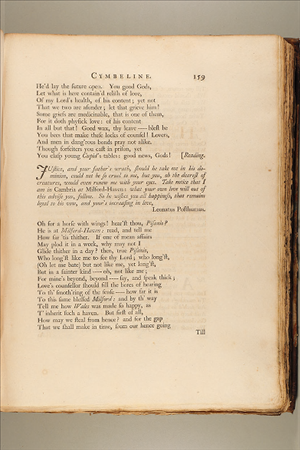 CYMBELINE. 159
He'd lay the future open. You good Gods,
Let what is here contain'd relish of love,
Of my Lord's health, of his content; yet not
That we two are asunder; let that grieve him!
Some griefs are medicinable, that is one of them,
For it doth physick love: of his content
In all but that! Good wax, thy leave — blest be
You bees that make these locks of counsel! Lovers,
And men in dang'rous bonds pray not alike.
Though forfeiters you cast in prison, yet
You clasp young Cupid's tables: good news, Gods! [Reading.
JUstice, and your father's wrath, should he take me in his do-
minion, could not be so cruel to me, but you, oh the dearest of
creatures, would even renew me with your eyes. Take notice that I
am in Cambria at Milford-Haven: what your own love will out of
this advise you, follow. So he wishes you all happiness, that remains
loyal to his vow, and your's increasing in love,
Leonatus Posthumus.
Oh for a horse with wings! hear'st thou, Pisanio?
He is at Milford-Haven: read, and tell me
How far 'tis thither. If one of mean affairs
May plod it in a week, why may not I
Glide thither in a day? then, true Pisanio,
Who long'st like me to see thy Lord; who long'st,
(Oh let me bate) but not like me, yet long'st,
But in a fainter kind — oh, not like me;
For mine's beyond, beyond — say, and speak thick;
Love's counsellor should fill the bores of hearing
To th' smoth'ring of the sense — how far it is
To this same blessed Milford: and by th' way
Tell me how Wales was made so happy, as
T' inherit such a haven. But first of all,
How may we steal from hence? and for the gap
That we shall make in time, from our hence going
Till